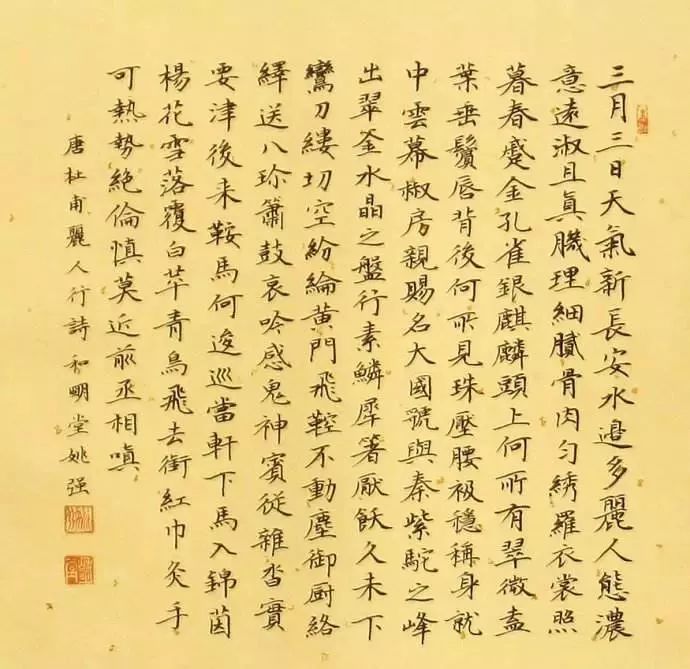 三月三日天氣新長安水邉多麗人態濃
意遠淑且真肌理細膩骨肉勻綉羅衣裳照
暮春蹙金孔雀銀麒麟頭上何所有翠微盍
葉垂鬢唇背後何所見珠壓腰衱穩稱身就
中雲幕椒房親賜名大國虢與秦紫駝之峰
出翠釜水晶之盤行素鱗犀箸厭飫久未下
鸞刀縷切空紛綸黃門飛鞚不動塵御厨絡
繹送八珍簫鼓哀吟感鬼神賓從雜沓實
要津後来鞍馬何逡巡當軒下馬入錦茵
楊花雪落覆白苹青鳥飛去銜紅巾炙手
可熱勢絕倫慎莫近前丞相嗔
唐杜甫麗人行詩和鸝堂姚强